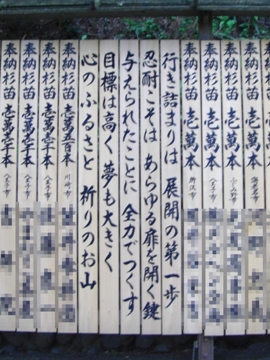 奉納杉苗 壱萬本
奉納杉苗 壱萬本
奉納杉苗 壱萬本 八王子市
奉納杉苗 壱萬本 所沢市
行き詰まりは 展開の第一歩
忍耐こそは あらゆる扉を開く鍵
与えられたことに 全力でつくす
目標は高く 夢も大きく
心のふるさと 祈りのお山
奉納杉苗 川崎市
奉納杉苗 八王子市
奉納杉苗 八王子市
奉納杉苗 八王子市